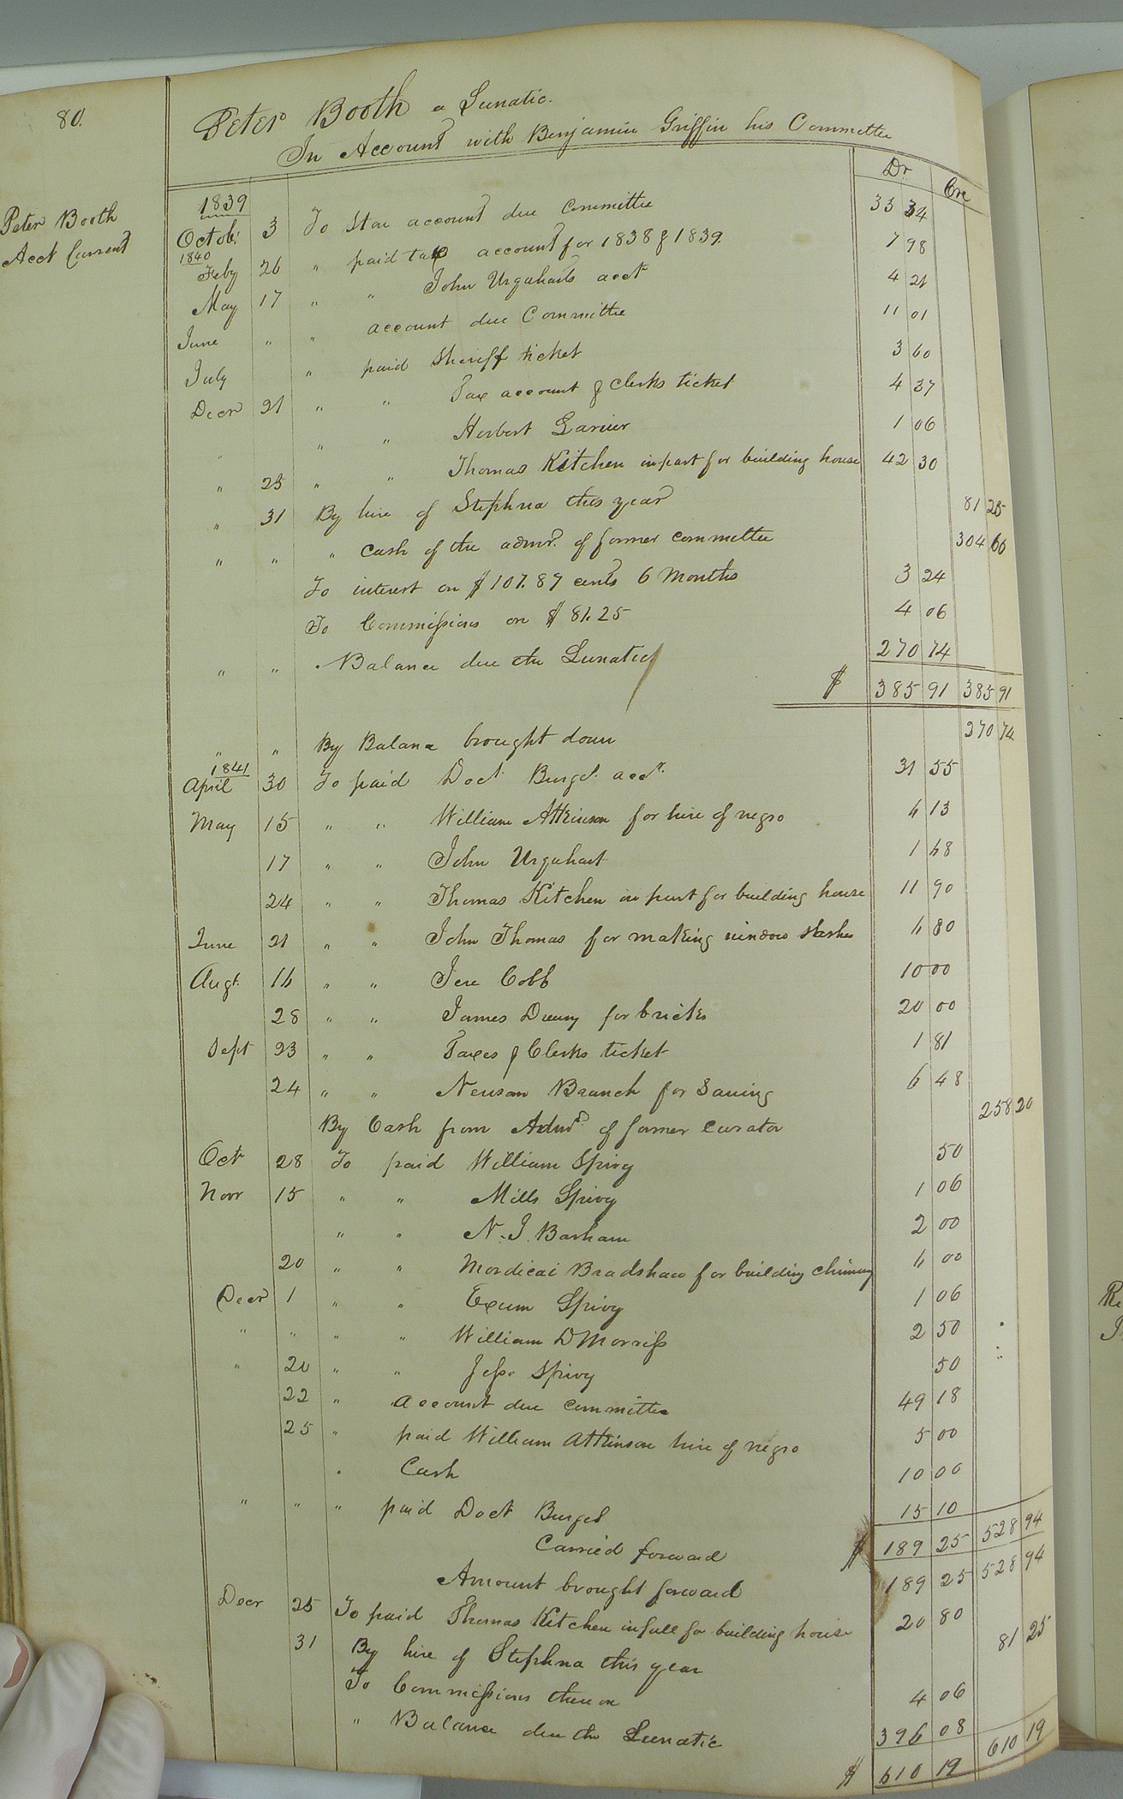 80.
Peter Booth a Lunatic.
In Account with Benjamin Griffin his Committee
Peter Booth
Acct Current
Dr Cre
1839
Octobr 3 To Store account due Committee 33 34
1840
Feby 26 " paid tax account for 1838 & 1839. 7 98
May 17 " " John Urquharts acct 4 21
June " " account due Committee 11 01
July " paid Sheriff ticket 3 60
Decr 21 " " Tax account & clerks ticket 4 37
" " " Herbert 1 06
" 25 " " Thomas Kitchen in part for building house 42 30
" 31 By hire of Stephna this year 81 25
" " " Cash of the admr. of former committee 304 66
To interest on $107.87 cents 6 Months 3 24
To Commissions on $81.25 4 06
" " Balance due the Lunatic 270 74
$ 385 91 385 91
" " By Balance brought down 270 74
1841
April 30 To paid Doct. Burges acct. 31 55
May 15 " " William Atkinson for hire of negro 6 13
17 " " John Urquhart 1 68
24 " " Thomas Kitchen in part for building house 11 90
June 21 " " John Thomas for making window Sashes 6 80
Augt. 16 " " Jere Cobb 10 00
28 " " James for bricks 20 00
Sept 23 " " Taxes & Clerks ticket 1 81
24 " " Newsom Branch for Sawing 6 48
By Cash from Admr. of former Curator 258 20
Oct 28 To paid William Spivy 50
Novr 15 " " Mills Spivy 1 06
" " N. J. Barham 2 00
20 " " Mordicai Bradshaw for building chimney 6 00
Decr 1 " " Exum Spivy 1 06
" " " " William D Morriss 2 50
" 20 " " Jesse Spivy 50
22 " account due committee 49 18
25 " paid William Atkinson hire of negro 5 00
" Cash 10 00
" " " paid Doct Burges 15 10
Carried forward $ 189 25 528 94
Amount brought forward 189 25 528 94
Decr 25 To paid Thomas Kitchen in full for building house 20 80
31 By hire of Stephna this year 81 25
To Commissions thereon 4 06
" Balance due the Lunatic 396 08
$ 610 19 610 19